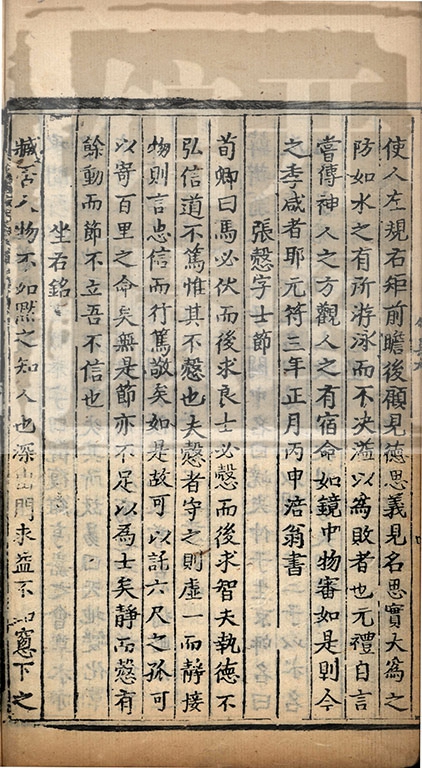 使人左規右矩前瞻後顧見德思義見名思實大為之
防如水之有所游泳而不決溢以為敗者也元禮自言
嘗傳神人之方觀人之有宿命如鏡中物審如是則今
之季咸者耶元符三年正月丙申涪翁書
張愨字士節
荀卿曰馬必伏而後求良士必愨而後求智夫執德不
弘信道不篤惟其不愨也夫愨者守之則虛一而靜接
物則言忠信而行篤敬矣如是故可以託六尺之孤可
以寄百里之命矣無是節亦不足以為士矣靜而愨有
餘動而節不立吾不信也
坐右銘
臧否人物不如默之知人也深出門求益不如窻下之